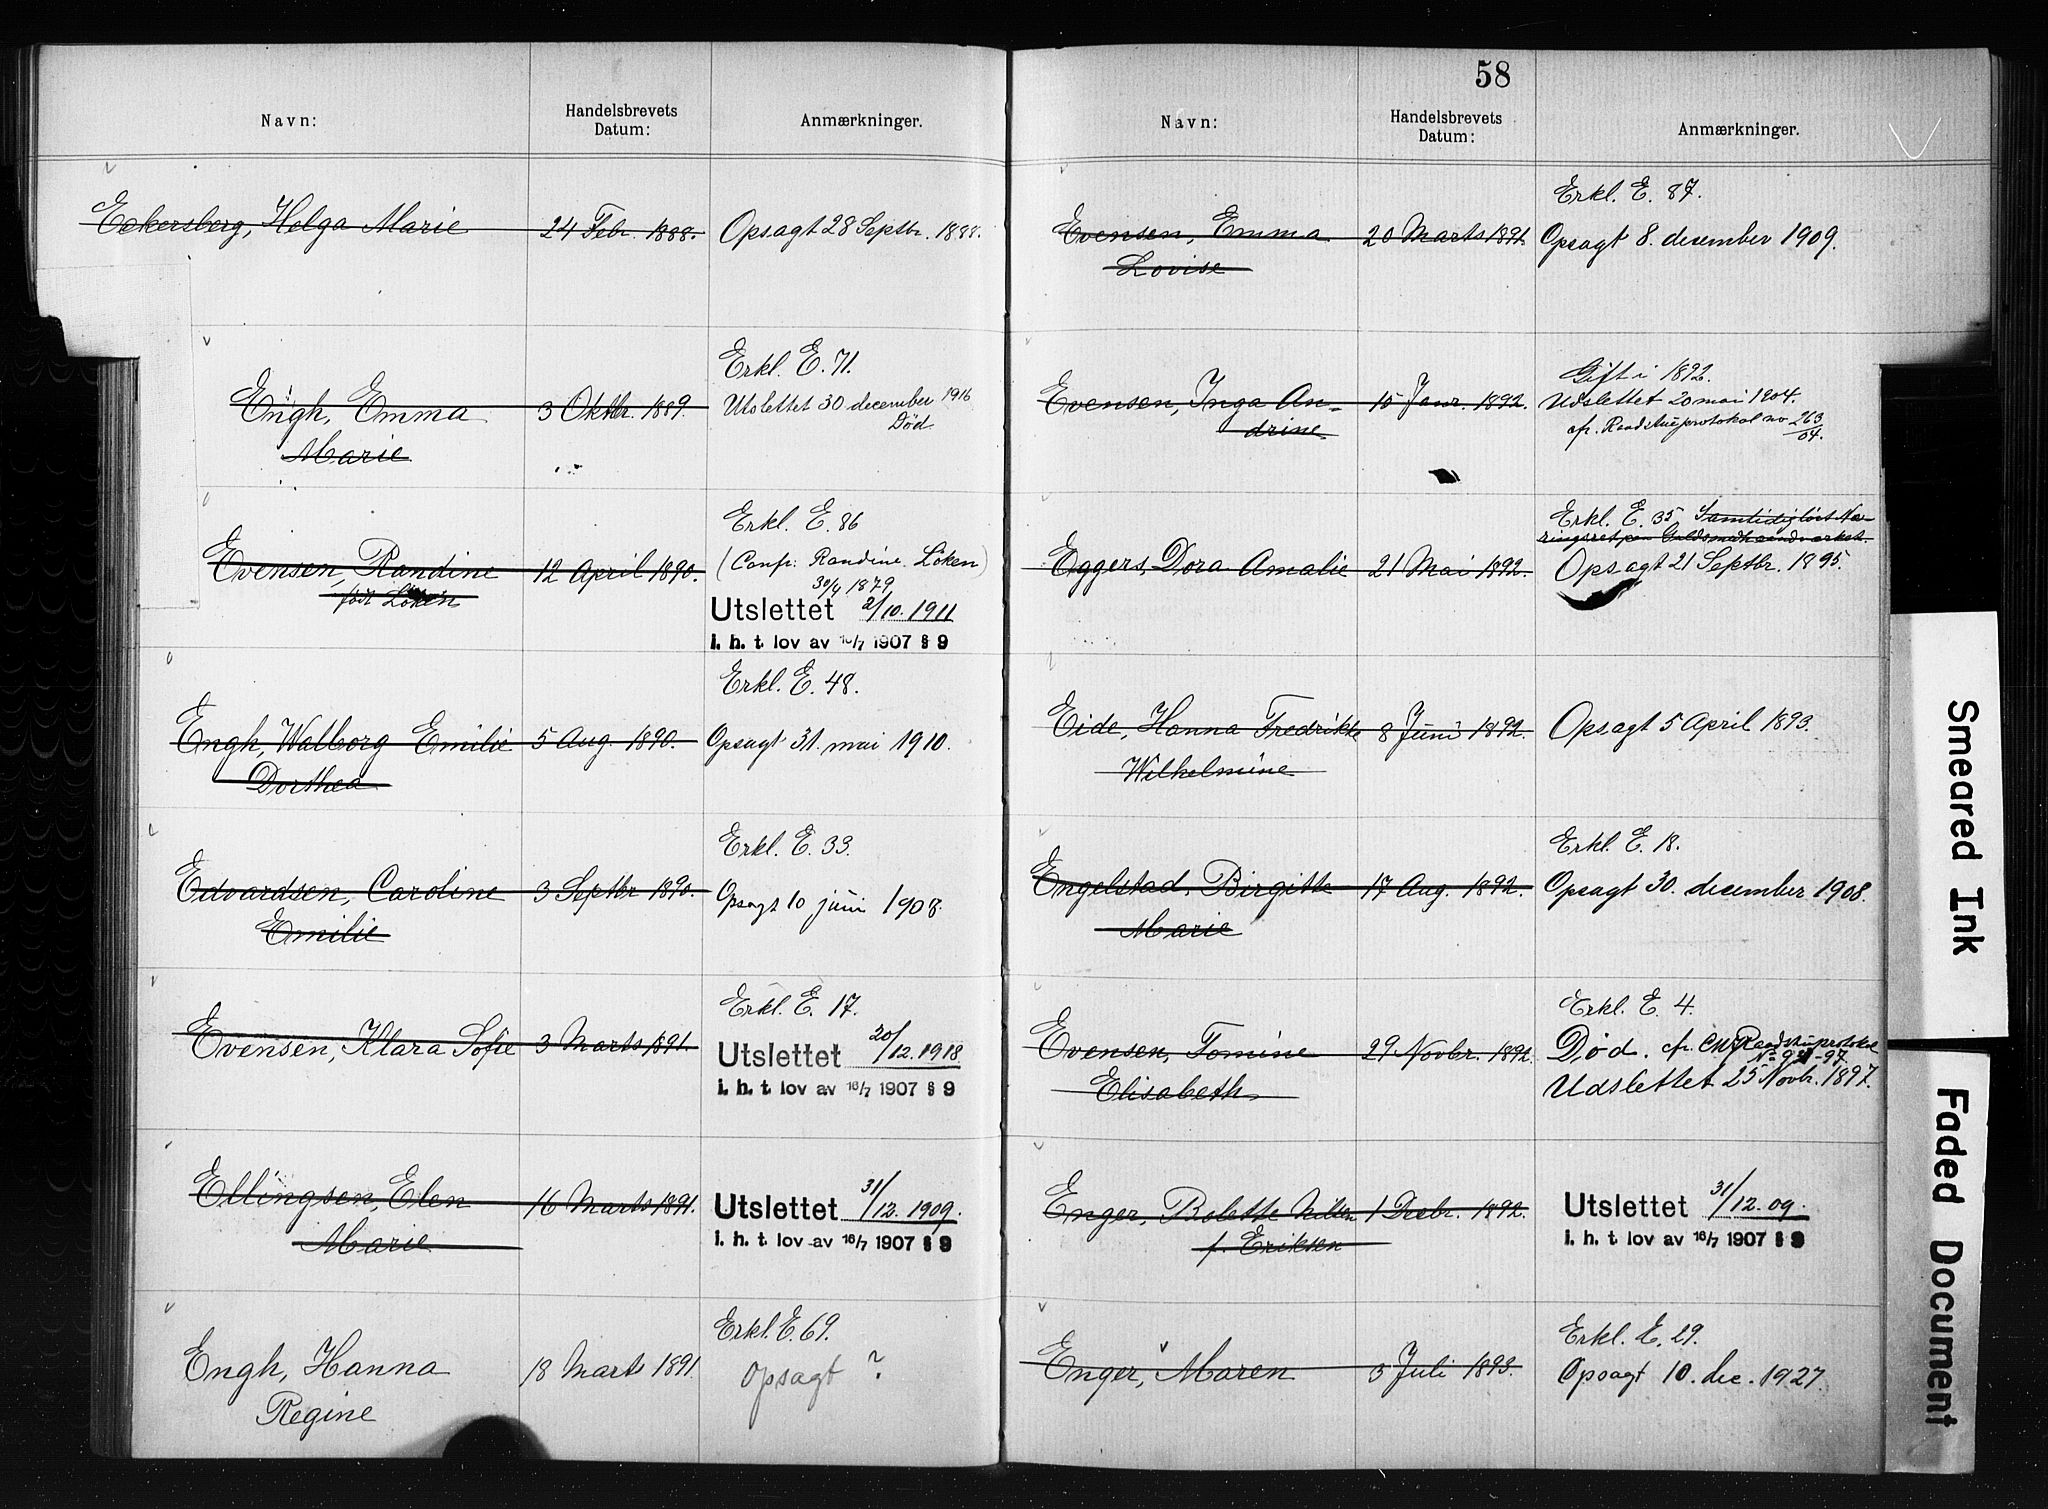 Navn:
Handelsbrevets
Datum:
Anmærkninger.
Eckersberg, Helga Marie
24 Febr. 1888.
Opsagt 28 Septbr. 1888.
Engh, Emma
Marie
3 Oktbr. 1889.
Erkl. E. 71.
Utslettet 30 december 1916
Død
Evensen, Randine
født Løken
12 April 1890.
Erkl. E. 86
(Confr. Randine Løken)
30/4 1879
Utslettet 2/10. 1911
i. h. t. lov av 16/7 1907 § 9
Engh, Walborg Emilie
Dorthea
5 Aug. 1890.
Erkl. E. 48.
Opsagt 31. mai 1910.
Edvardsen, Caroline
Emilie
3 Septbr 1890.
Erkl. E. 33.
Opsagt 10 juni 1908.
Evensen, Klara Sofie
3 Marts 1891.
Erkl. E. 17.
Utslettet 20/12. 1918
i. h. t. lov av 16/7 1907 § 9
Ellingsen, Elen
Marie
16 Marts 1891.
Utslettet 31/12. 1909.
i. h. t. lov av 16/7 1907 § 9
Engh, Hanna
Regine
18 Marts 1891.
Erkl. E. 69.
Opsagt ?
58
Navn:
Handelsbrevets
Datum:
Anmærkninger.
Evensen, Emma
Lovise
20 Marts 1891.
Erkl. E. 87.
Opsagt 8. desember 1909.
Evensen, Inga An-
drine
15 Janr. 1892.
Gift i 1892.
Udslettet 20 mai 1904.
cfr. Raadstueprotokol no 263/04.
Eggers, Dora Amalie
21 Mai 1892.
Erkl. E. 35 Samtidig løst Næ-
ringsret paa Guldsmedhaandværket.
Opsagt 21 Septbr. 1895.
Eide, Hanna Fredrikke
Wilhelmine
8 Juni 1892.
Opsagt 5 April 1893.
Engelstad, Birgitte
Marie
17 Aug. 1892.
Erkl. E. 18.
Opsagt 30. december 1908.
Evensen, Tomine
Elisabeth
29 Novbr. 1892.
Erkl. E. 4.
Død. cfr. Raadstueprotokol
Udslettet 25 Novbr. 1897.
Enger, Bolette
f. Eriksen
1 Decbr. 1892.
Utslettet 31/12. 09.
i. h. t. lov av 16/7 1907 § 9
Enger, Maren
3 Juli 1893.
Erkl. E. 29.
Opsagt 10. dec. 1927.
Smeared Ink
Faded Document